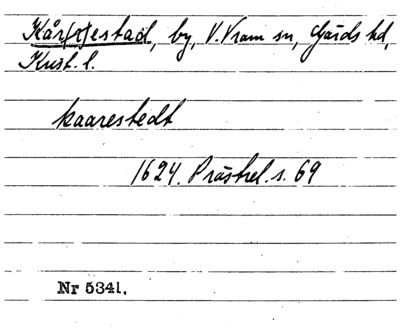 Kår(r)estad, by, V. Vram sn, Gärds hd,
Krist. l.
kaarestedt
1624. Prästrel. s. 69
Nr 5341.